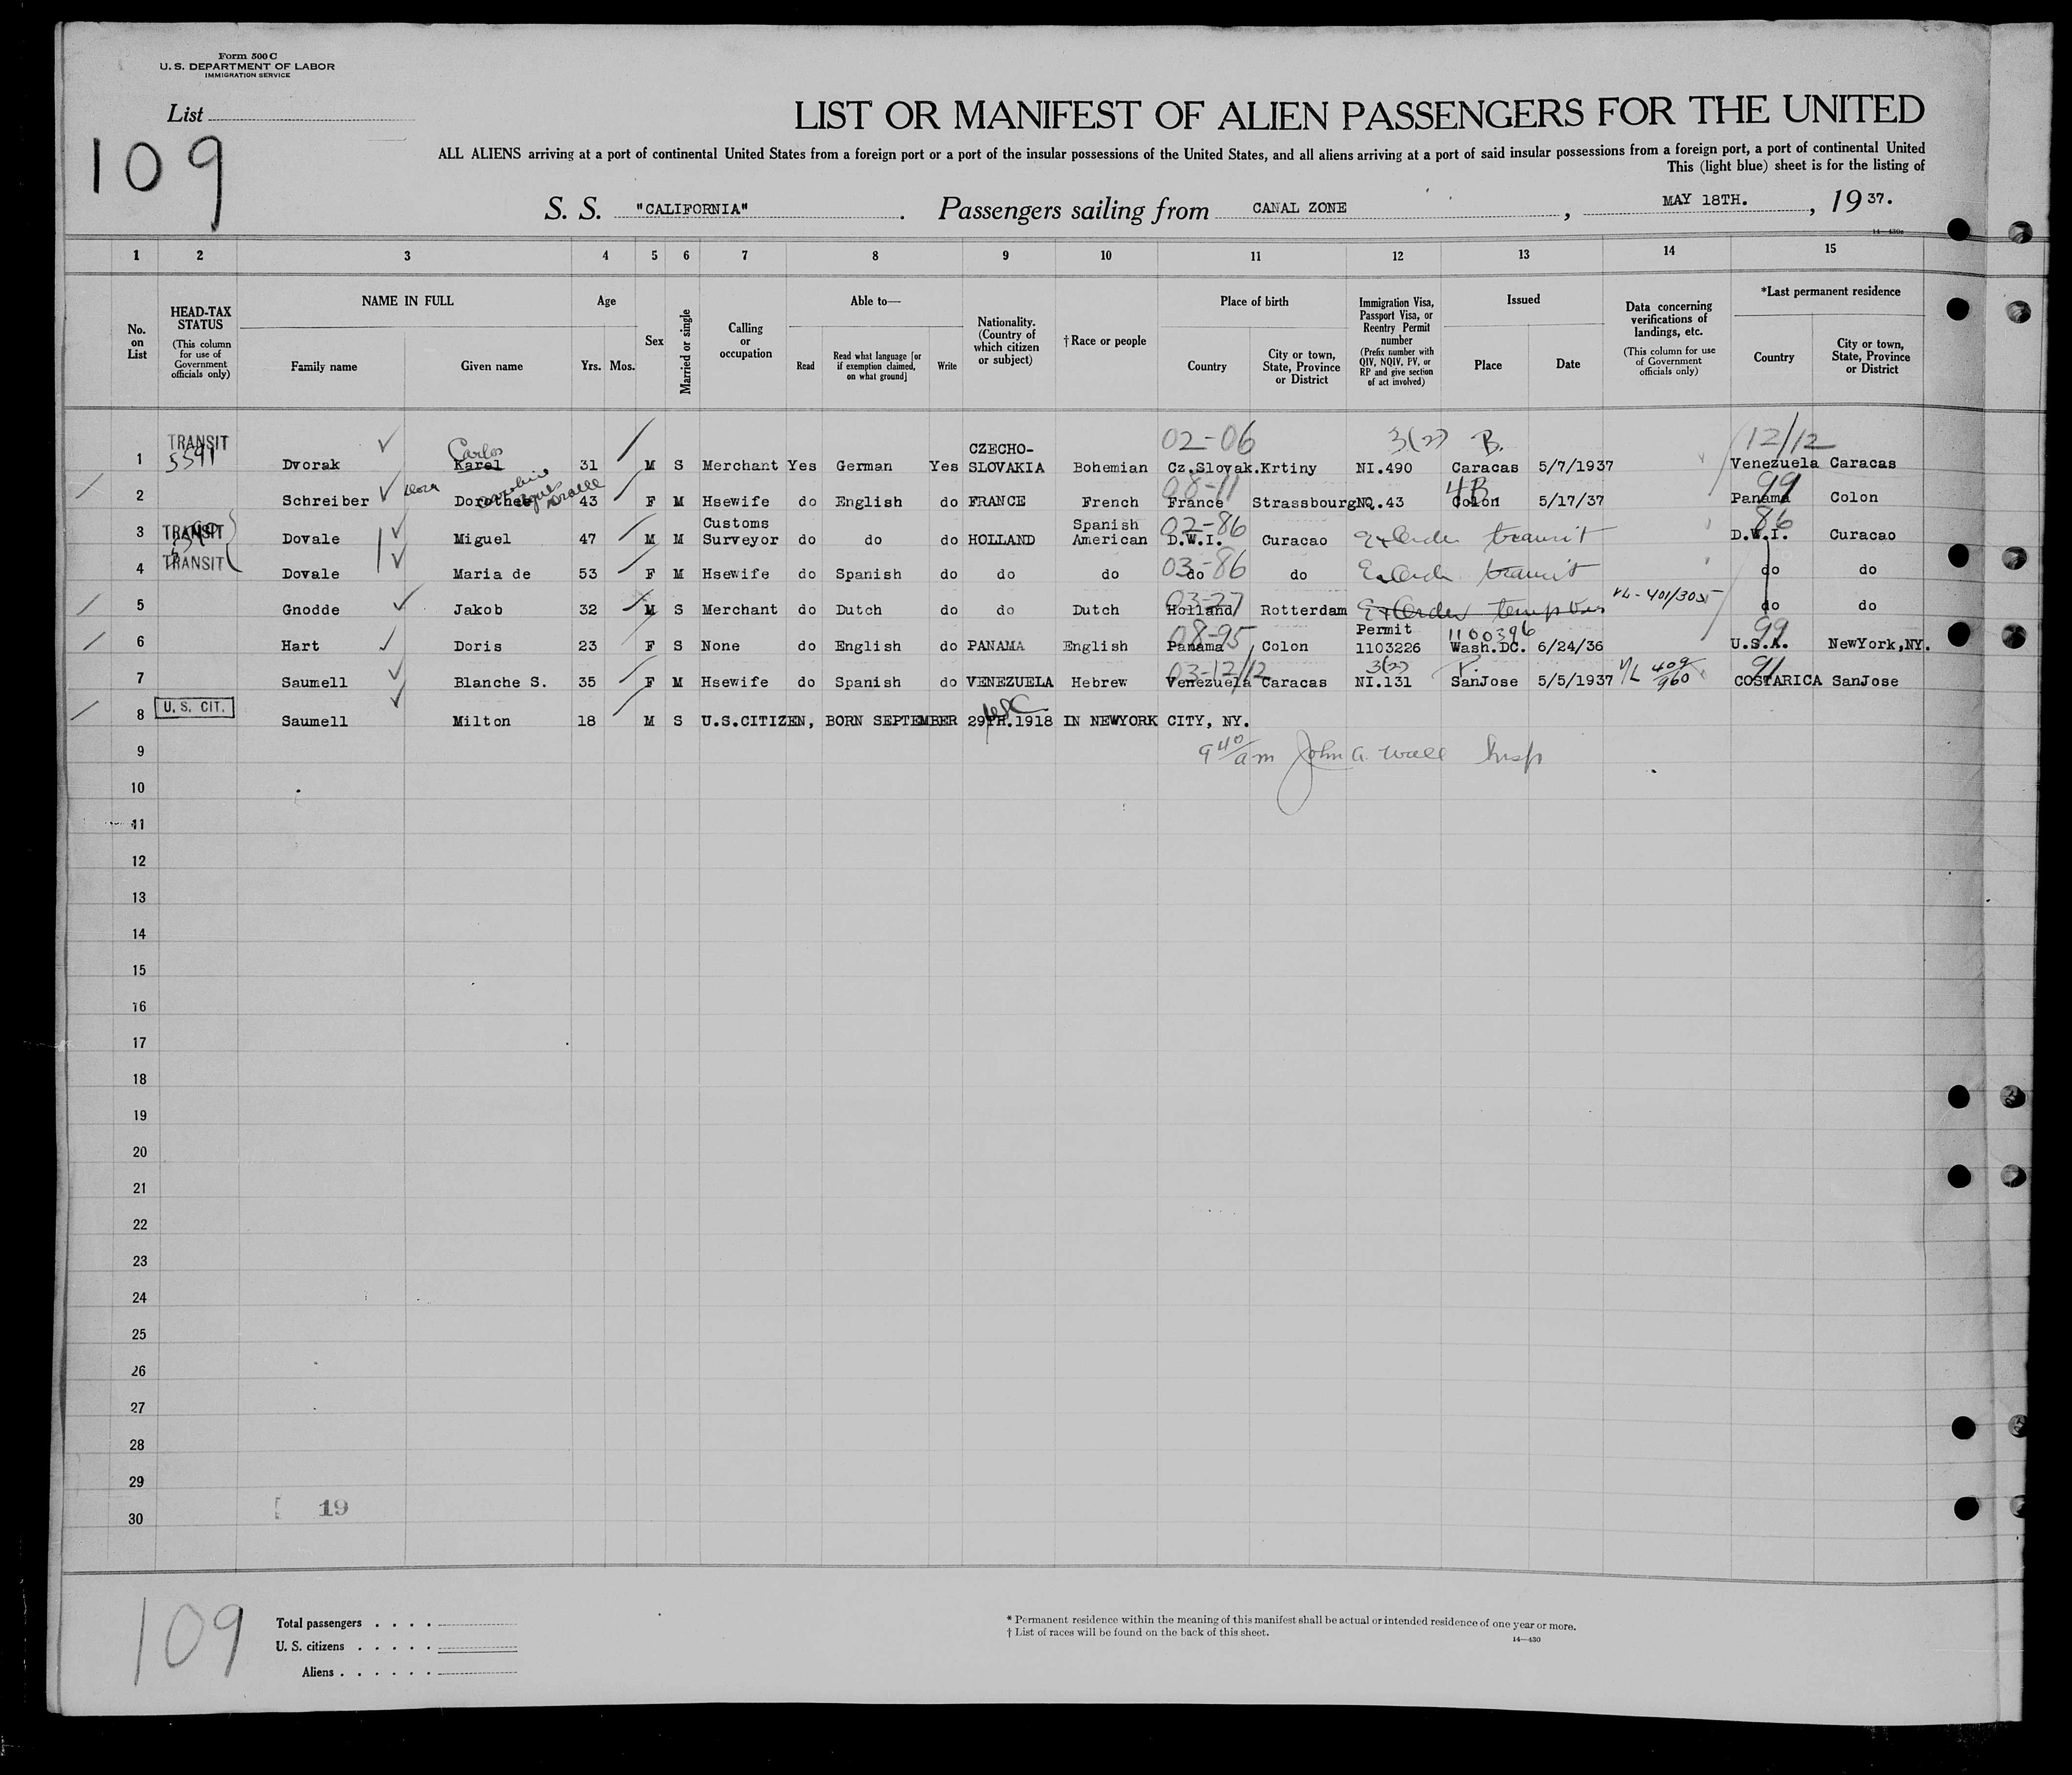 Form 500 C
U. S. DEPARTMENT OF LABOR
IMMIGRATION SERVICE
List
109
LIST OR MANIFEST OF ALIEN PASSENGERS FOR THE UNITED
ALL ALIENS arriving at a port of continental United States from a foreign port or a port of the insular possessions of the United States, and all aliens arriving at a port of said insular possessions from a foreign port, a port of continental United
This (light blue) sheet is for the listing of
S. S. "CALIFORNIA" . Passengers sailing from CANAL ZONE , MAY 18TH. , 19 37.
14—430c
1 2 3 4 5 6 7 8 9 10 11 12 13 14 15
No. on List
HEAD-TAX STATUS (This column for use of Government officials only)
NAME IN FULL Family name Given name
Age Yrs. Mos.
Sex
Married or single
Calling or occupation
Able to— Read Read what language [or if exemption claimed, on what ground] Write
Nationality. (Country of which citizen or subject)
† Race or people
Place of birth Country City or town, State, Province or District
Immigration Visa, Passport Visa, or Reentry Permit number (Prefix number with QIV, NQIV, PV, or RP and give section of act involved)
Issued Place Date
Data concerning verifications of landings, etc. (This column for use of Government officials only)
*Last permanent residence Country City or town, State, Province or District
TRANSIT Carlos CZECHO- 02-06 3(2) B. 12/12
1 5591 Dvorak Karel 31 M S Merchant Yes German Yes SLOVAKIA Bohemian Cz.Slovak. Krtiny NI.490 Caracas 5/7/1937 Venezuela Caracas
08-11 4B 99
2 Schreiber Dorothee 43 F M Hsewife do English do FRANCE French France Strassbourg NQ.43 Colon 5/17/37 Panama Colon
Customs Spanish 02-86 86
3 TRANSIT Dovale Miguel 47 M M Surveyor do do do HOLLAND American D.W.I. Curacao transit D.W.I. Curacao
4 TRANSIT Dovale Maria de 53 F M Hsewife do Spanish do do do 03-86 do do transit do do
03-27
5 Gnodde Jakob 32 M S Merchant do Dutch do do Dutch Holland Rotterdam 401/3055 do do
08-95 Permit 1100396 99
6 Hart Doris 23 F S None do English do PANAMA English Panama Colon 1103226 Wash.DC. 6/24/36 U.S.A. NewYork,NY.
03-12/12 3(2) P. 91
7 Saumell Blanche S. 35 F M Hsewife do Spanish do VENEZUELA Hebrew Venezuela Caracas NI.131 SanJose 5/5/1937 V/L 409/960 COSTARICA SanJose
8 U. S. CIT. Saumell Milton 18 M S U.S.CITIZEN, BORN SEPTEMBER 29TH.1918 IN NEWYORK CITY, NY.
9 9 40/am John A. Wall Insp
10
11
12
13
14
15
16
17
18
19
20
21
22
23
24
25
26
27
28
29
30 19
109
Total passengers . . . .
U. S. citizens . . . . .
Aliens . . . . . .
* Permanent residence within the meaning of this manifest shall be actual or intended residence of one year or more.
† List of races will be found on the back of this sheet.
14—430